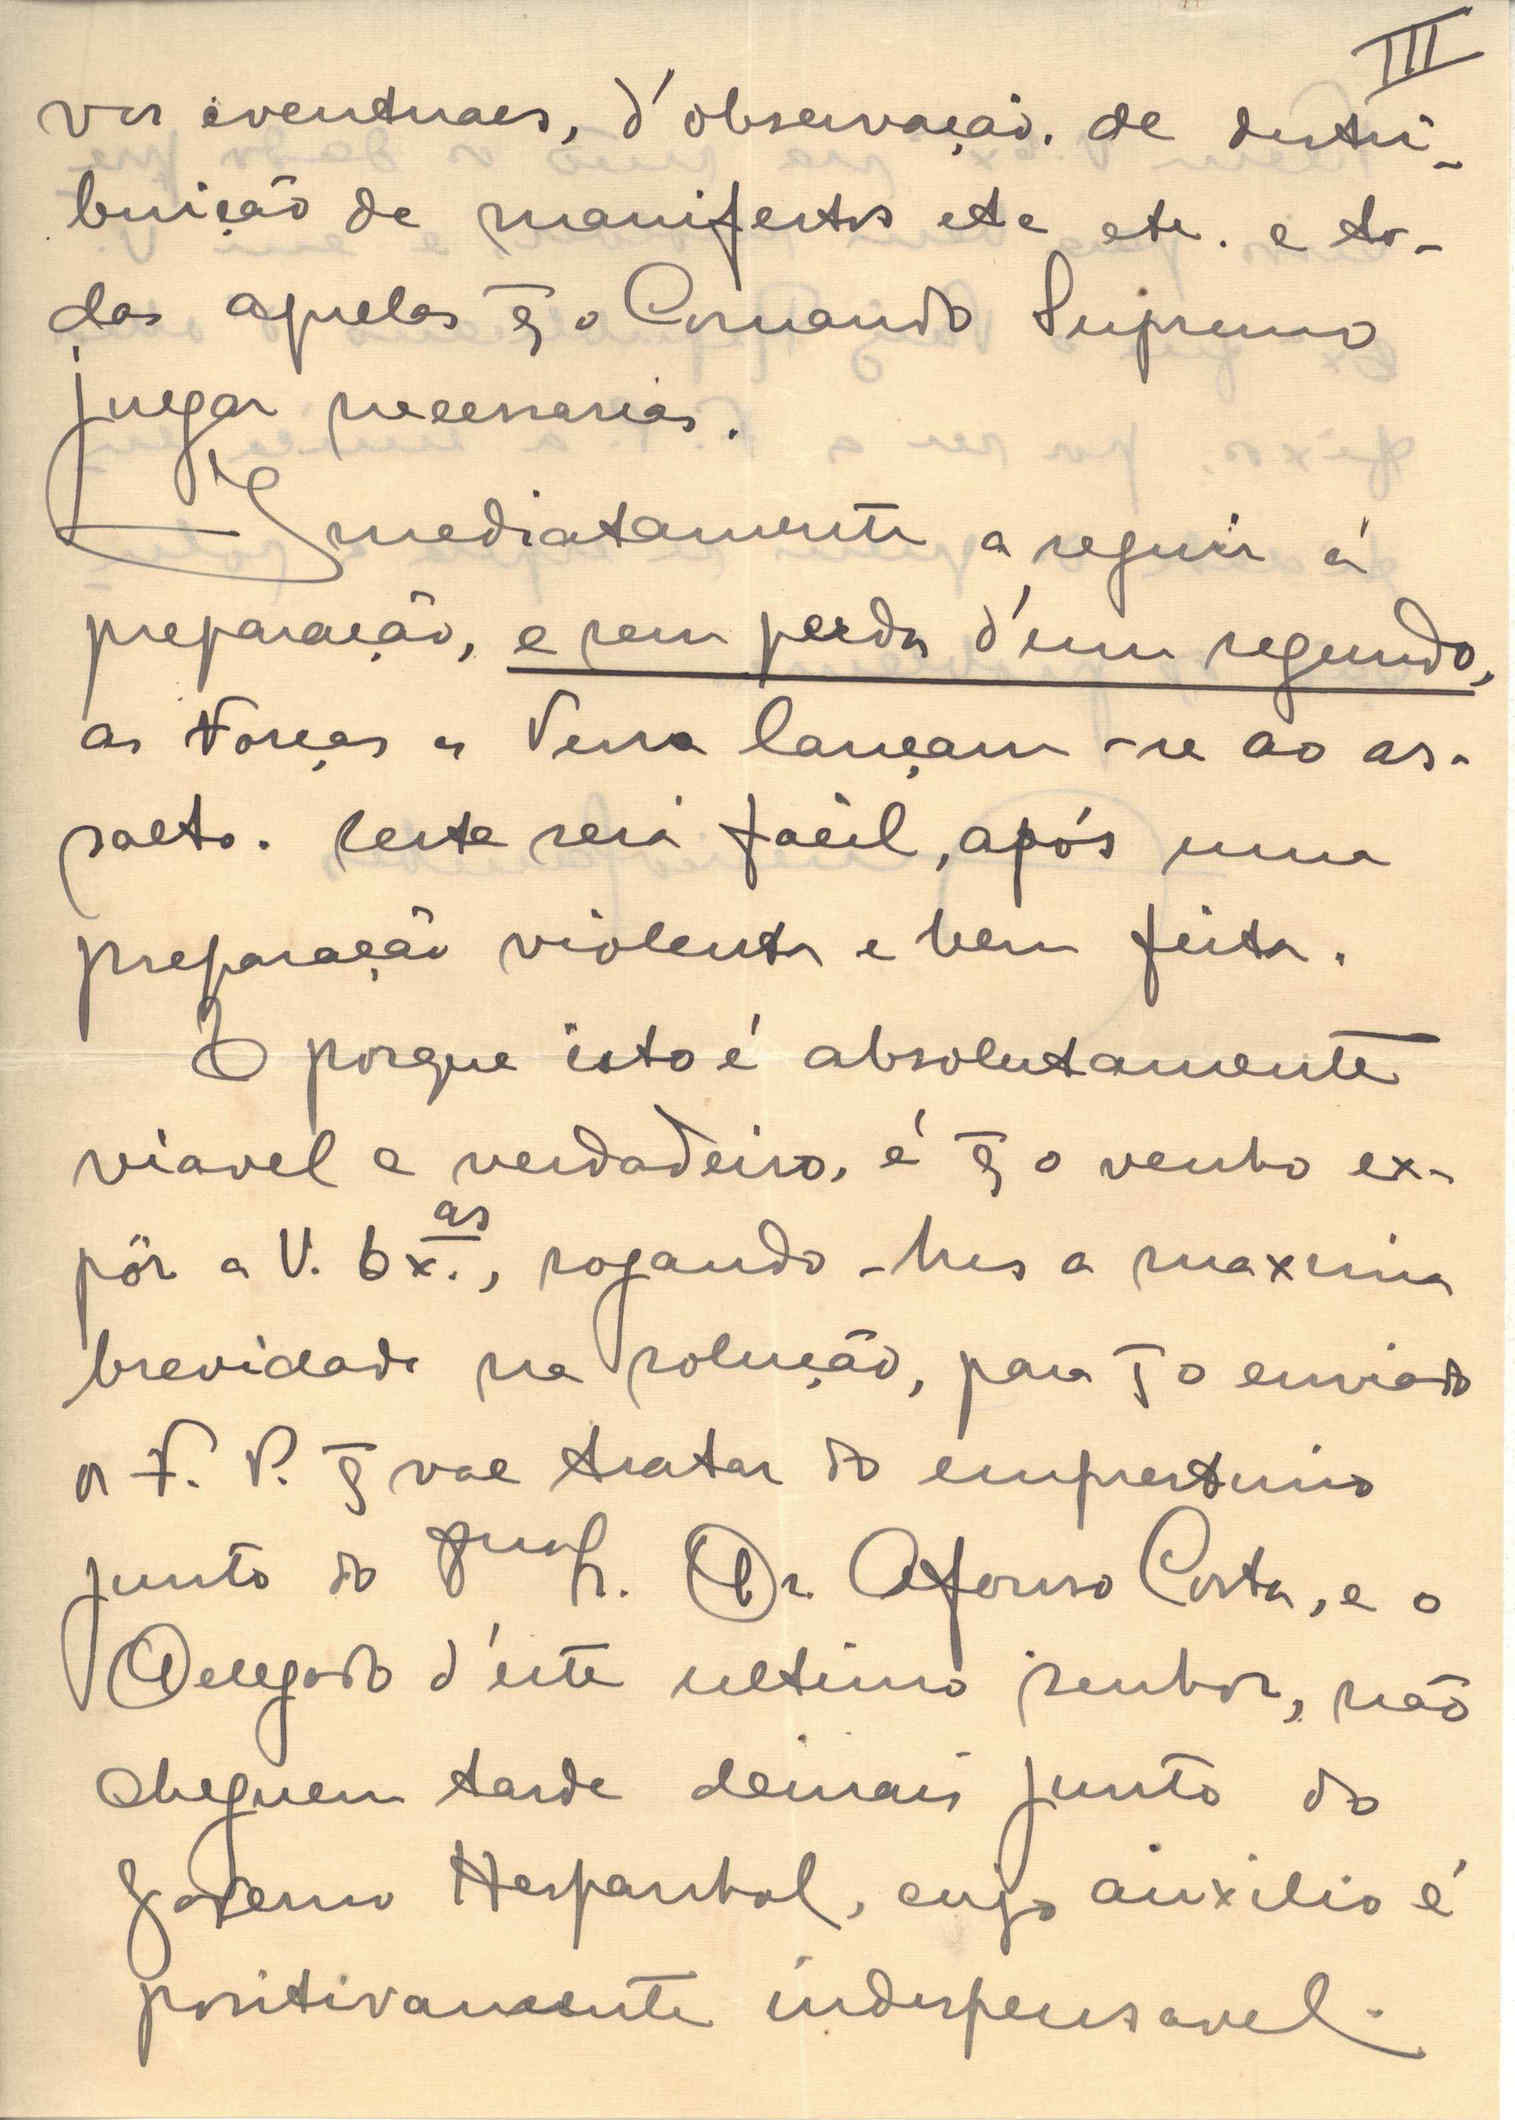 III
vos eventuaes, d'observação, de distri-
buição de manifestos etc etc. e to-
das aquelas q̄ o Comando Supremo
julgar necessarias.
Imediatamente a seguir á
preparação, e sem perda d'um segundo,
as Forças de Terra lançam-se ao as-
salto. Este será facil, após uma
preparação violenta e bem feita.
E porque isto é absolutamente
viavel e verdadeiro, é q̄ o venho ex-
pôr a V. Ex.as, rogando-lhes a maxima
brevidade na solução, para q̄ o enviado
da F. P. q̄ vae tratar do emprestimo
junto do Prof. Dr. Afonso Costa, e o
Delegado d'este ultimo senhor, não
cheguem tarde demais junto do
Governo Hespanhol, cujo auxilio é
positivamente indispensavel.